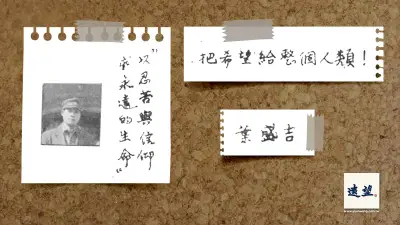 “以忍苦與信仰
求永遠的生命”
把希望給整個人類！
葉盛吉
遠望